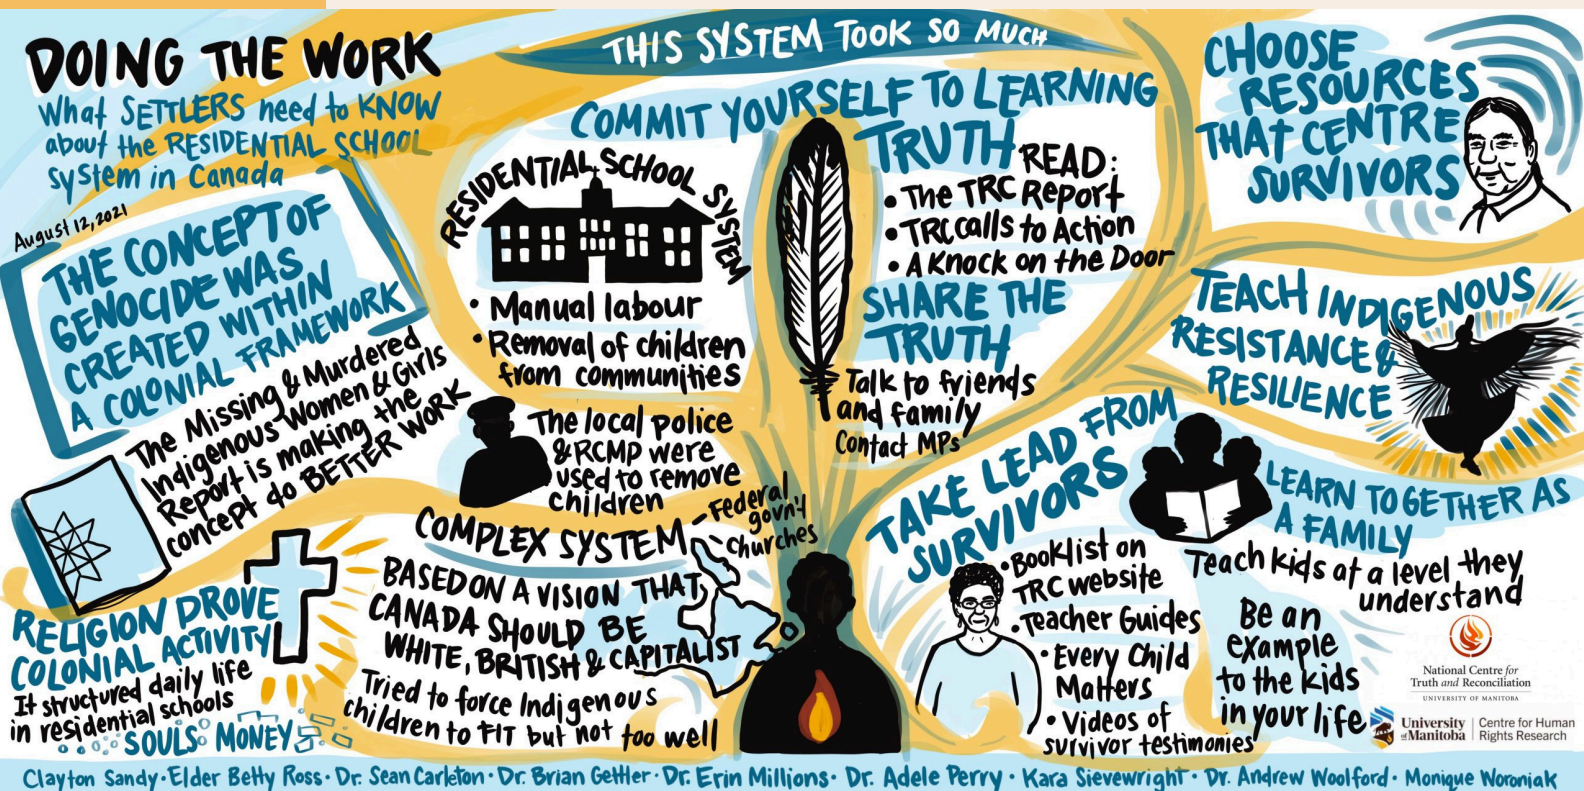 DOING THE WORK
What SETTLERS need to KNOW
about the RESIDENTIAL SCHOOL
system in Canada
August 12, 2021
THE CONCEPT OF
GENOCIDE WAS
CREATED WITHIN
A COLONIAL FRAMEWORK
The Missing & Murdered
Indigenous Women & Girls
Report is making the
concept do BETTER WORK
RELIGION DROVE
COLONIAL ACTIVITY
It structured daily life
in residential schools
SOULS MONEY
THIS SYSTEM TOOK SO MUCH
COMMIT YOURSELF TO LEARNING
TRUTH
RESIDENTIAL SCHOOL SYSTEM
• Manual labour
• Removal of children
from communities
The local police
& RCMP were
used to remove
children
COMPLEX SYSTEM
- Federal
govn't
- Churches
BASED ON A VISION THAT
CANADA SHOULD BE
WHITE, BRITISH & CAPITALIST
Tried to force Indigenous
children to FIT but not too well
READ:
• The TRC Report
• TRC calls to Action
• A Knock on the Door
SHARE THE
TRUTH
Talk to friends
and family
Contact MPs
TAKE LEAD FROM
SURVIVORS
• Booklist on
TRC website
• Teacher Guides
• Every Child
Matters
• Videos of
survivor testimonies
CHOOSE
RESOURCES
THAT CENTRE
SURVIVORS
TEACH INDIGENOUS
RESISTANCE &
RESILIENCE
LEARN TOGETHER AS
A FAMILY
Teach kids at a level they
understand
Be an
example
to the kids
in your life
National Centre for
Truth and Reconciliation
UNIVERSITY OF MANITOBA
University
of Manitoba
Centre for Human
Rights Research
Clayton Sandy • Elder Betty Ross • Dr. Sean Carleton • Dr. Brian Gettler • Dr. Erin Millions • Dr. Adele Perry • Kara Sievewright • Dr. Andrew Woolford • Monique Woroniak